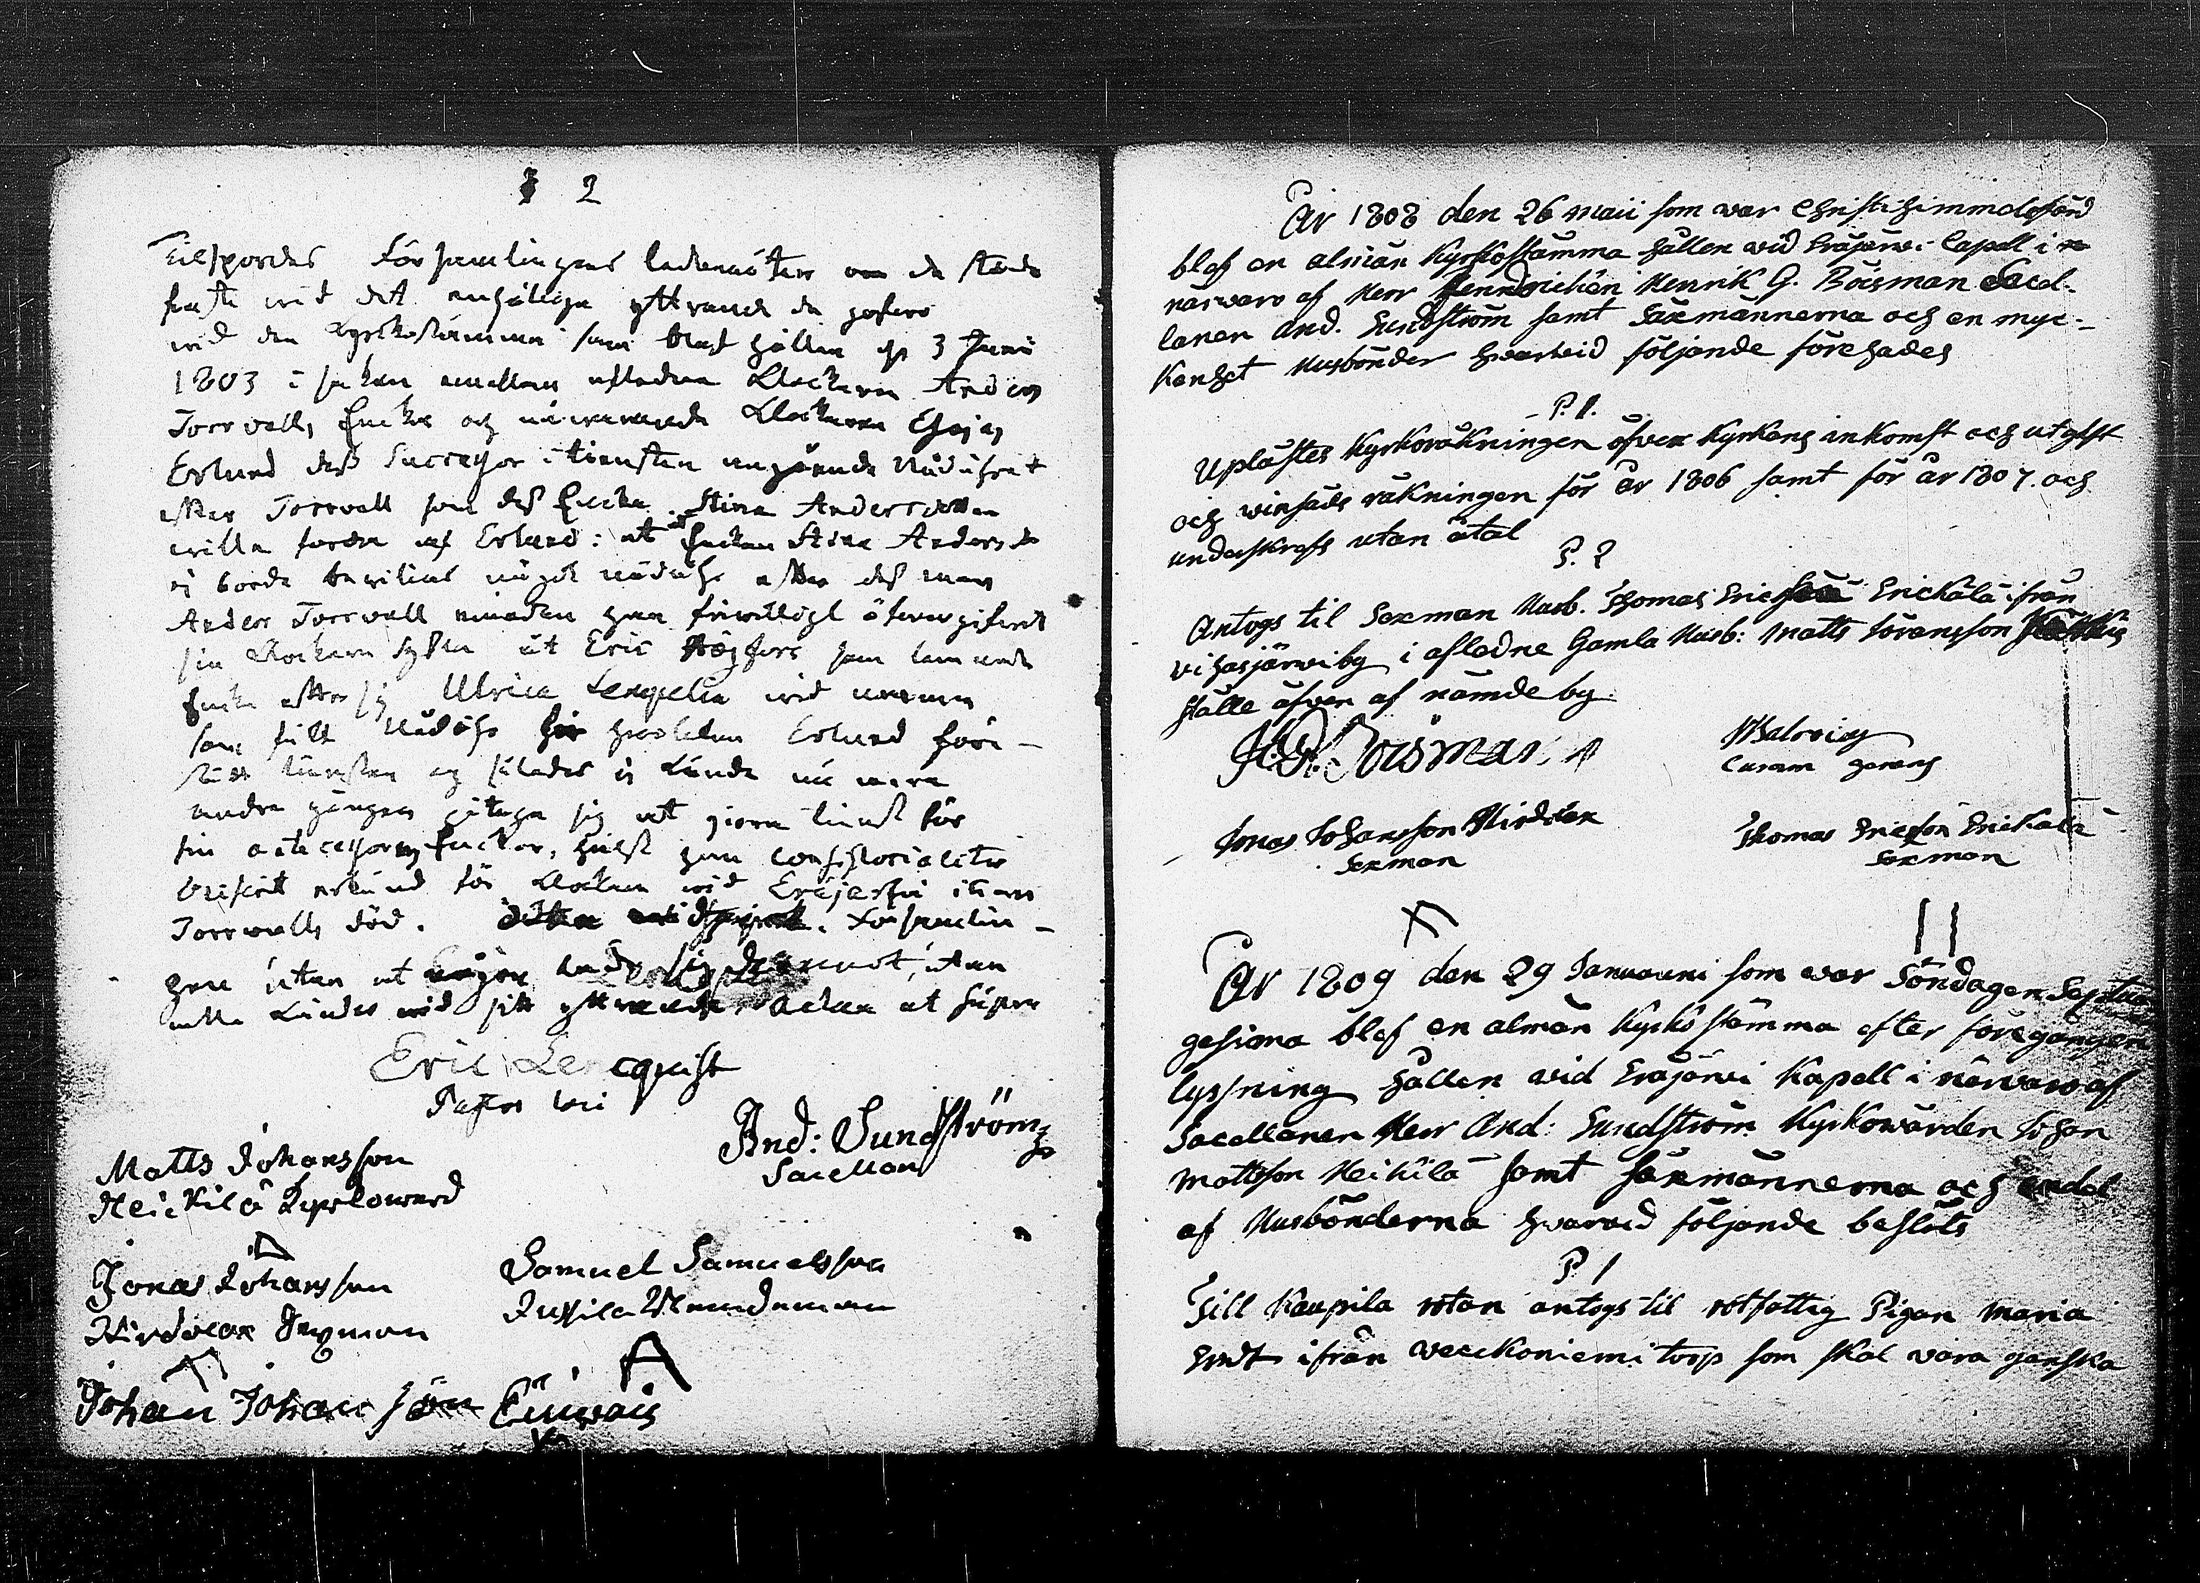 § 2
Tilspordes Församlingens ledamöter om de stodo
fast wid det enhällige yttrande de gofwo
wid den Kyrkostämma som blef hållen d. 3 Junii
1803 i saken emellan afledne Klockaren Anders
Torrvalls Encka och närwarande Klockaren Esajas
Erlund dess Successor i tiensten angående Nådåhret
efter Torrvall som dess Encka Stina Andersdotter
willa fordra af Erlund: at Enckan Stina Andersdr
ej borde bewiljas något nådåhr efter dess man
Anders Torrvall emedan han friwilligt återgifwit
sin Klockare syssla åt Eric Högfors som lämnade
Encka efter sig Ulrica Lempelia wid namn
som fått Nådåhr hwarunder Erlund före-
stått tiensten och således ej kunde nu mera
andra gången åtaga sig at giöra tienst för
sin antecessors Enckor, hälst han consistorialiter
blifwit erkänd för Klockare wid Eräjärfwi innan
Torrwalls död. Församlin-
gen utan at någon hade sig däremot, utan
wid sitt yttrande at
Eric Lencquist
Pastor loci
And: Sundström
Sacellan
Matts Johansson
Heickilä Kyrkoward
Jonas Johansson
Hirdolax Sexman
Samuel Samuelsson
Jussila Nämndeman
Johan Johansson Eerois
År 1808 den 26 Maii som war Christi himmelsfärd
blef en almän Kyrkostämma hållen wid Eräjärwi Capell i
närwaro af Herr Henrik G. Boisman Sacel-
lanen And. Sundström samt Säxmännerna och en myc-
kenhet Husbönder hwarwid följande förehades
P. 1.
Uplästes Kyrkoräkningen öfwer Kyrkans inkomst och utgift
och winsäds räkningen för år 1806 samt för år 1807. och
underskrefs utan åtal
P. 2
Antogs til Sexman Husb. Thomas Ericsson Erickälä ifrån
vihasjärwi by i afledne Gamla Husb: Matts Göransson
ställe äfven af nämde by
H. G. Boisman
curam gerens
Jonas Johansson Hirdolax
Sexman
Thomas Ericsson Erickala
Sexman
År 1809 den 29 Januarii som war Söndagen Septua
gesima blef en almän Kyrkostämma efter föregången
lyssning hållen wid Eräjärwi Kapell i närwaro af
Sacellanen Herr And: Sundström Kyrkowärden Johan
Mattsson Heikilä samt säxmännerna och endel
af Husbönderna hwarwid följande beslöts
P 1
Till Kaupila rotan antogs til rotfattig Pigan Maria
ifrån weeckoniemi torp som skal wara ganska